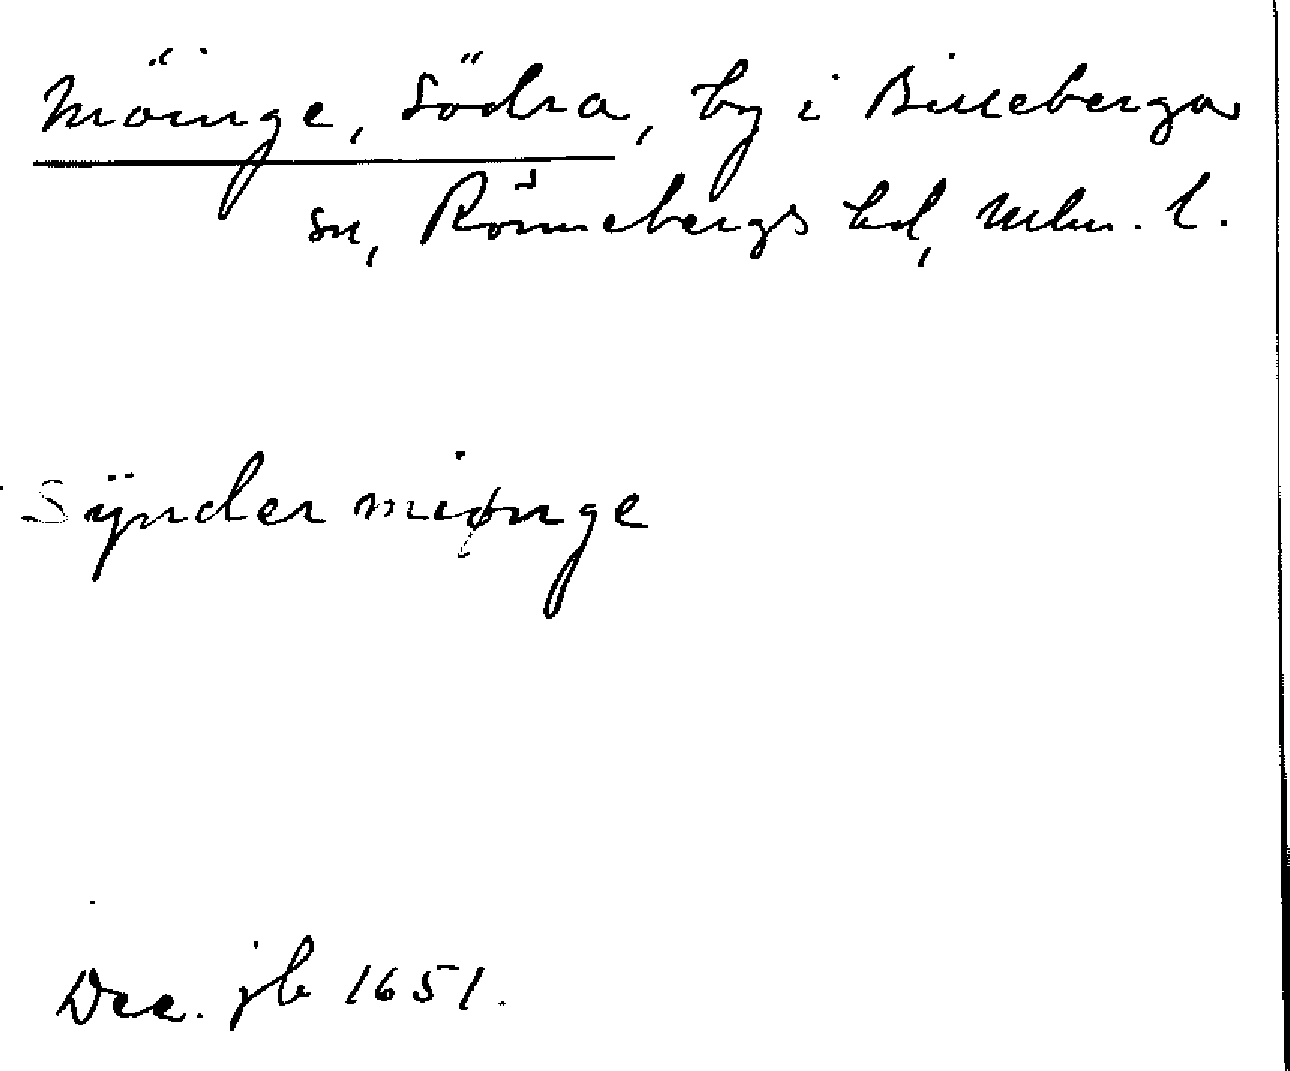 Möinge, Södra, by i Billeberga
sn, Rönnebergs hd, Mlm. l.
Sÿnder miønge
Dec. jb 1651.